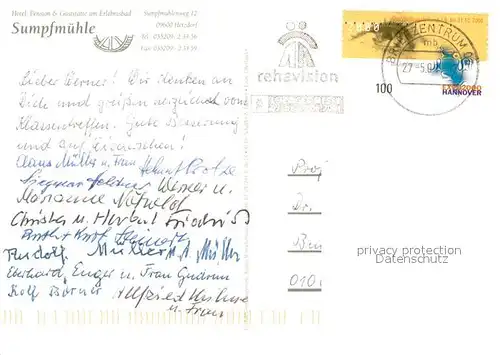 Hotel Pension & Gaststätte am Erlebnisbad
Sumpfmühlenweg 12
09600 Hetzdorf
Sumpfmühle
Tel. 035209 - 2 33 36
Fax 035209 - 2 33 39
Lieber Werner! Wir denken an
Dich und grüßen herzlich vom
Klassentreffen. Gute Besserung
und auf Wiedersehen!
Claus Müller u. Frau Helmut
Werner u.
Marianne
Christa u. Herbert Friedrich
Ruth + Kurt
Rudolf Müller u. A. Müller
Eberhard Enger u. Frau Gudrun
Rolf Börner Alfried
u. Frau
rehavision
BRIEFZENTRUM 0
mb
27-5.0
100
EXPO2000
HANNOVER
Proj
Dr.
010
privacy protection
Datenschutz